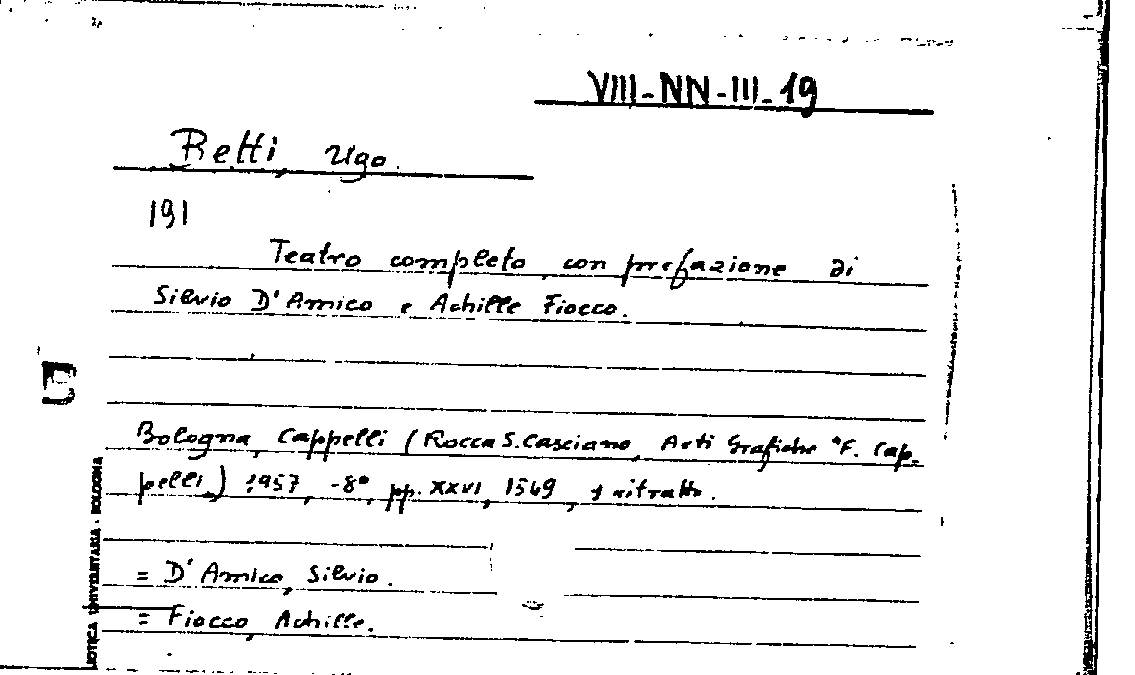 VIII-NN-III-19
Betti, Ugo.
191
Teatro completo, con prefazione di
Silvio D'Amico e Achille Fiocco.
Bologna, Cappelli (Rocca S. Casciano, Arti Grafiche "F. Cap-
pelli„) 1957, -8°, pp. XXVI, 1549, 1 ritratto.
= D'Amico, Silvio.
= Fiocco, Achille.
IOTECA UNIVERSITARIA - BOLOGNA